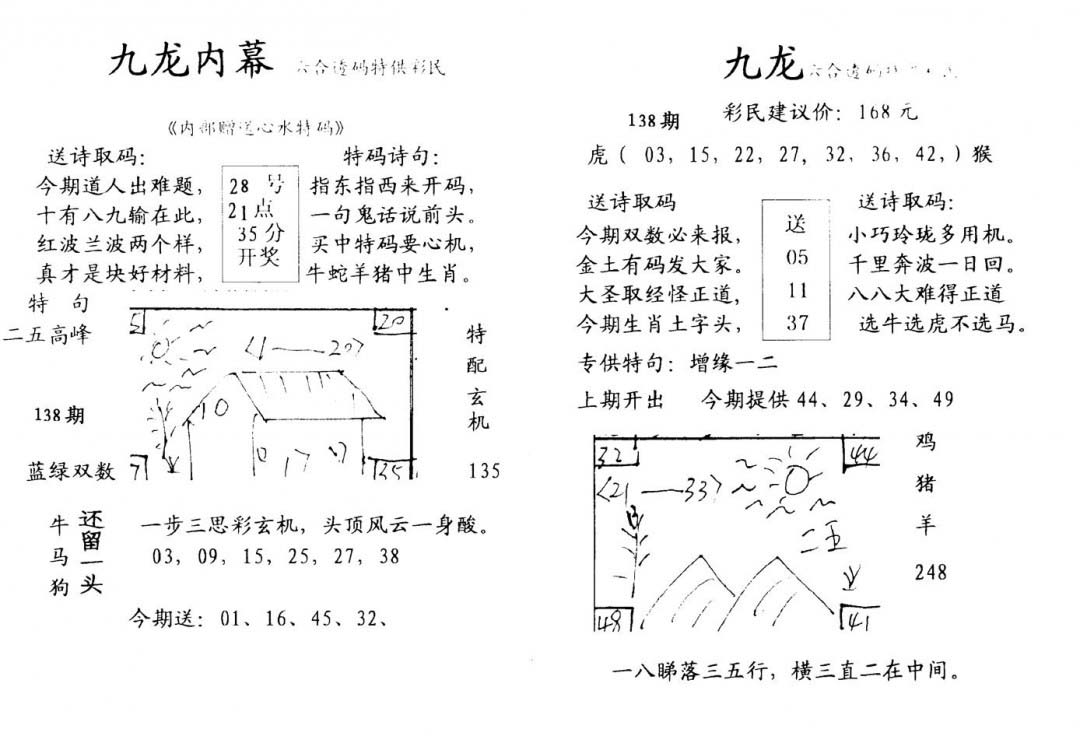 九龙内幕 六合透码特供彩民
《内部赠送心水特码》
送诗取码：
今期道人出难题，
十有八九输在此，
红波兰波两个样，
真才是块好材料，
28 号
21点
35分
开奖
特码诗句：
指东指西来开码，
一句鬼话说前头。
买中特码要心机，
牛蛇羊猪中生肖。
特 句
二五高峰
138期
蓝绿双数
5
20
〈1——20〉
10
0 17
7
35
特
配
玄
机
135
牛
马
狗
还
留
一
头
一步三思彩玄机，头顶风云一身酸。
03，09，15，25，27，38
今期送：01、16、45、32、
九龙 六合透码
138期
彩民建议价：168 元
虎（ 03，15，22，27，32，36，42，）猴
送诗取码
今期双数必来报，
金土有码发大家。
大圣取经怪正道，
今期生肖土字头，
送
05
11
37
送诗取码：
小巧玲珑多用机。
千里奔波一日回。
八八大难得正道
选牛选虎不选马。
专供特句：增缘一二
上期开出 今期提供 44、29、34、49
32
44
〈21——33〉
二五
48
41
鸡
猪
羊
248
一八睇落三五行，横三直二在中间。